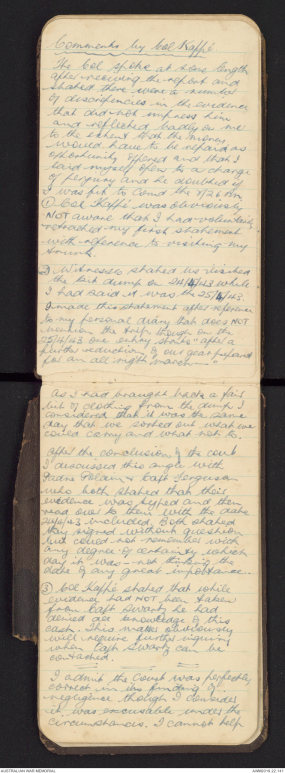 Comments by Col Kappé.
The Col spoke at some length
after receiving the report and
stated there were a number
of discrepancies in the evidence
that did not impress him
and reflected badly on me
to the extent that the money
would have to be repaid as
opportunity offered and that I
laid myself open to a charge
of perjury and he doubted if
I was fit to Comd the 2/26 Bn.
① Col Kappé was obviously
NOT aware that I had voluntarily
retracted my first statement
with reference to visiting my
trunk.
② Witnesses stated we visited
the kit dump on 24/4/43 while
I had said it was the 25/4/43.
I made this statement after reference
to my personal diary that does NOT
mention the trip though on the
25/4/43 one entry starts "after a
further reduction of our gear prepared
for an all night march —"
As I had brought back a fair
bit of clothing from the dump I
considered that it was the same
day that we sorted out what we
could carry and what not to.
After the conclusion of the court
I discussed this angle with
Padre Polain & Capt Ferguson
who both stated that their
evidence was typed and then
read over to them with the date
24/4/43 included. Both stated
they signed without question
but could not remember with
any degree of certainty which
day it was — not thinking the
date of any great importance.
③ Col Kappé stated that while
evidence had NOT been taken
from Capt Swartz he had
denied all knowledge of this
cash. This matter obviously
will require further inquiry
when Capt Swartz can be
contacted.
I admit the Court was perfectly
correct in its finding of
negligence though I consider
it was excusable under the
circumstances. I cannot help
AUSTRALIAN WAR MEMORIAL